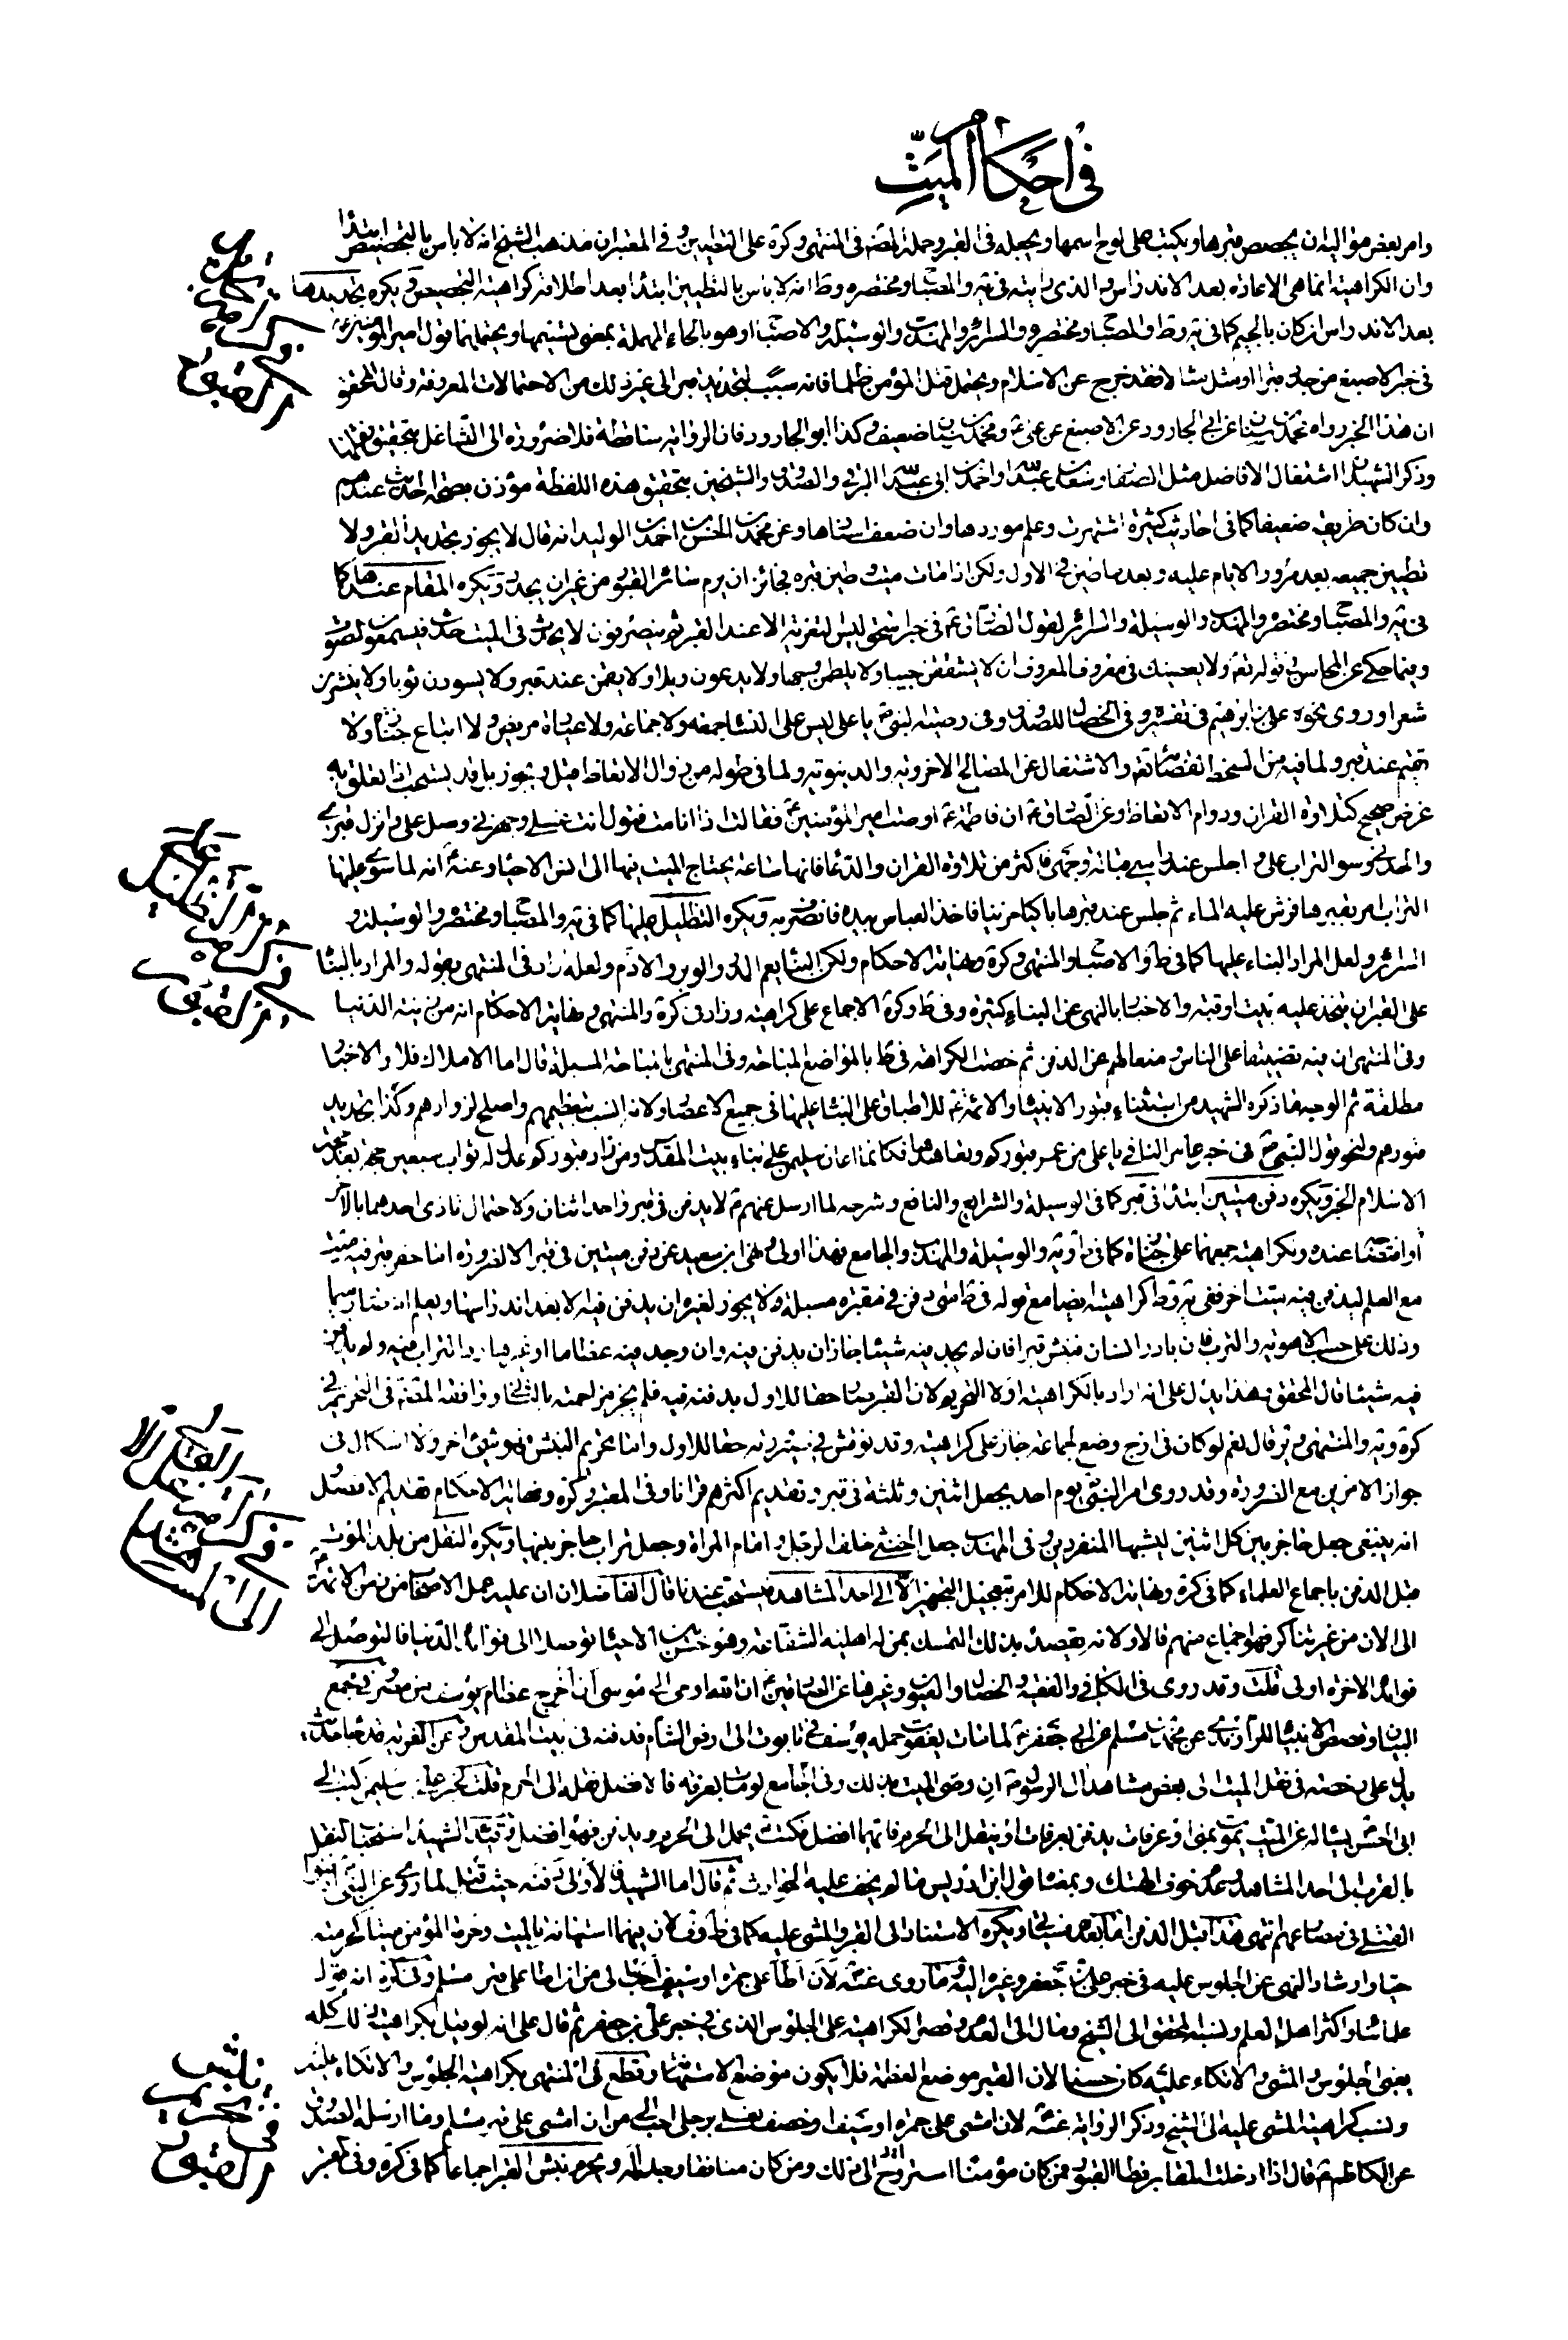 في احكام الميت
وامر بعض مواليه ان يجصص قبرها ويكتب على لوح اسمها ويجعله في القبر وحمله المصنف في المنتهى وكرة على التطيين وفي المعتبر ان مذهب الشيخ انه لا باس بالتجصيص ابتداء
وان الكراهية انما هي الاعادة بعد الاندراس والذي رايته في ية والمصباح ومختصره وط انه لا باس بالتطيين ابتداء بعد اطلاق كراهية التجصيص ويكره تجديدها
بعد الاندراس ان كان بالجيم كما في ية وط والمصباح ومختصره والسرائر والمهذب والوسيلة والاصباح او هو بالحاء المهملة بمعنى تسنيمها ويحتملهما قول امير المؤمنين ع
في خبر الاصبغ من جدد قبرا او مثل مثالا فقد خرج عن الاسلام ويحتمل قتل المؤمن ظلما فانه سبب لتجديد قبر الى غير ذلك من الاحتمالات المعروفة وقال المحقق
ان هذا الخبر رواه محمد بن سنان عن ابي الجارود عن الاصبغ عن علي ع ومحمد بن سنان ضعيف وكذا ابو الجارود فان الرواية ساقطة فلا ضرورة الى التشاغل بتحقيق نقلها
وذكر الشهيد ان اشتغال الافاضل مثل الصفار وسعد بن عبد الله واحمد بن ابي عبد الله البرقي والصدوق والشيخين بتحقيق هذه اللفظة مؤذن بصحة الحديث عندهم
وان كان طريقه ضعيفا كما في احاديث كثيرة اشتهرت وعلم موردها وان ضعف اسنادها وعن محمد بن الحسن بن احمد بن الوليد انه قال لا يجوز تجديد القبر ولا
تطيين جميعه بعد مرور الايام عليه وبعد ما طين في الاول ولكن اذا مات ميت وطين قبره فجائز ان يرم سائر القبور من غير ان يجدد ويكره المقام عندها كما
في ية والمصباح ومختصره والمهذب والوسيلة والسرائر لقول الصادق ع في خبر اسحق ليس التعزية الا عند القبر ثم ينصرفون لا يحدث في الميت حدث فيسمعون الصوت
وفيما حكي عن المحاسن في قوله تعالى ولا يعصينك في معروف المعروف ان لا يشققن جيبا ولا يلطمن وجها ولا يدعون ويلا ولا يقمن عند قبر ولا يسودن ثوبا ولا ينشرن
شعرا وروى نحوه علي بن ابرهيم في تفسيره وفي الخصال للصدوق وفي وصيته النبي ص يا علي ليس على النساء جمعة ولا جماعة ولا عيادة مريض ولا اتباع جنازة ولا
تقيم عند قبر ولما فيه من السخط لقضاء الله تعالى والاشتغال عن المصالح الاخروية والدنيوية ولما في طوله من زوال الاتعاظ قيل ويجوز بل قد يستحب اذا تعلق به
غرض صحيح كتلاوة القران ودوام الاتعاظ وعن الصادق ع ان فاطمة ع اوصت امير المؤمنين ع فقالت اذا انا مت فتول انت غسلي وجهزني وصل علي وانزل قبري
والحدني وسو التراب علي واجلس عند راسي قبالة وجهي فاكثر من تلاوة القران والدعاء فانها ساعة يحتاج الميت فيها الى انس الاحياء وعنه ع انه لما سوى عليها
التراب امر بقبرها فرش عليه الماء ثم جلس عند قبرها باكيا حزينا فاخذ العباس بيده فانصرف به ويكره التظليل عليها كما في ية والمصباح ومختصره والوسيلة و
السرائر ولعل المراد البناء عليها كما في ط والاصباح والمنتهى وكرة ونهاية الاحكام ولكن البناء يعم المدر والوبر والادم ولعله زاد في المنتهى وقوله والمراد بالبناء
على القبر ان يتخذ عليه بيت او قبة والاخبار بالنهي عن البناء كثيرة وفي ط وكرة الاجماع على كراهيته وزاد في كرة والمنتهى ونهاية الاحكام انه من زينة الدنيا
وفي المنتهى ان فيه تضييقا على الناس ومنعا لهم عن الدفن ثم خصت الكراهة في ط بالمواضع المباحة وفي المنتهى بالمباحة المسبلة قال اما الاملاك فلا والاخبار
مطلقة ثم الوجه ما ذكره الشهيد من استثناء قبور الانبياء والائمة ع للاطباق على البناء عليها في جميع الاعصار ولانه انسب بتعظيمهم واصلح لزوارهم وكذا تجديد
قبورهم ولنحو قول النبي ص في خبر عامر البنائي يا علي من عمر قبوركم وتعاهدها فكانما اعان سليمن على بناء بيت المقدس ومن زار قبوركم عدل له ثواب سبعين حجة بعد حجة
الاسلام الخبر ويكره دفن ميتين ابتداء في قبر كما في الوسيلة والشرايع والنافع وشرحه لما ارسل عنهم ع لا يدفن في قبر واحد اثنان ولاحتمال تاذي احدهما بالاخر
او افتضاحه عنده ولكراهية جمعهما على جنازة كما في ط وية والوسيلة والمهذب والجامع فهذا اولى ونهى ابن سعيد عن دفن ميتين في قبر الا لضرورة اما حفر قبر فيه ميت
مع العلم ليدفن فيه ميت اخر ففي ية وط كراهيته ايضا مع قوله في ط متى دفن في مقبرة مسبلة ولا يجوز لغيره ان يدفن فيه الا بعد اندراسها ويعلم انه صار رميما
وذلك على حسب الاهوية والترب فان بادر انسان فنبش قبرا فان لم يجد فيه شيئا جاز ان يدفن فيه وان وجد فيه عظاما او غيرها رد التراب فيه ولم يدفن
فيه شيئا قال المحقق وهذا يدل على انه اراد بالكراهية اولا التحريم لان القبر صار حقا للاول بدفنه فيه فلم يجز مزاحمته بالثاني ووافقه المصنف في التحريم في
كرة وية والمنتهى ثم قال نعم لو كان في ازج وضع لجماعة جاز على كراهية وقد نوقش في صيرورته حقا للاول واما تحريم النبش فهو شيء اخر ولا اشكال في
جواز الامرين مع الضرورة وقد روى امر النبي ص يوم احد بجعل اثنين وثلثة في قبر وتقديم اكثرهم قرانا وفي المعتبر وكرة ونهاية الاحكام تقديم الافضل و
انه ينبغي جعل حاجز بين كل اثنين ليشبها المنفردين وفي المهذب جعل الخنثى خلف الرجل وامام المراة وجعل تراب حاجز بينهما ويكره النقل من بلد الموت
قبل الدفن باجماع العلماء كما في كرة ونهاية الاحكام للامر بتعجيل التجهيز الا الى احد المشاهد فيستحب عندنا قال الفاضلان ان عليه عمل الاصحاب من زمن الائمة ع
الى الان من غير تناكر فهو اجماع منهم قالا ولانه يقصد بذلك التمسك بمن له اهلية الشفاعة وهو حسن بين الاحياء توصلا الى فوائد الدنيا فالتوصل الى
فوائد الاخرة اولى قلت وقد روى في الكافي والفقيه والخصال والعيون وغيرها عن الصادقين ع ان الله تعالى اوحى الى موسى ان اخرج عظام يوسف من مصر وفي مجمع
البيان وقصص الانبياء للراوندي عن محمد بن مسلم عن ابي جعفر ع لما مات يعقوب حمله يوسف في تابوت الى ارض الشام فدفنه في بيت المقدس وعن العزية قد جاء حديث
يدل على رخصة في نقل الميت الى بعض مشاهد ال الرسول ص ان وصى الميت بذلك وفي الجامع لو مات بعرفة فالافضل نقله الى الحرم قلت لخبر علي بن سليمن كتب الى
ابي الحسن ع يساله عن الميت يموت بمنى او عرفات يدفن بعرفات او ينقل الى الحرم فايهما افضل فكتب يحمل الى الحرم ويدفن فهو افضل وقيد الشهيد استحباب النقل
بالقرب الى احد المشاهد وعدم خوف الهتك وبمعناه قول ابن ادريس ما لم يخف عليه الحوادث ثم قال اما الشهيد فالاولى دفنه حيث قتل لما روي عن النبي ص ادفنوا
القتلى في مصارعهم انتهى هذا قبل الدفن اما بعده فسياتي ويكره الاستناد الى القبر والمشي عليه كما في ط وف لان فيهما استهانة بالميت وحرمة المؤمن ميتا كحرمته
حيا وارشاد النهي عن الجلوس عليه في خبر علي بن جعفر وغيره اليه وما روى عنه ص لان اطأ على جمرة او سيف احب الي من ان اطأ على قبر مسلم وفي كرة انه قول
علمائنا واكثر اهل العلم ونسبه المحقق الى الشيخ ومال الى العدم وقصر الكراهية على الجلوس الذي في خبر علي بن جعفر ثم قال على انه لو قيل بكراهية ذلك كله
يعني الجلوس والمشي والاتكاء عليه كان حسنا لان القبر موضع العظة فلا يكون موضع الاستهانة وقطع في المنتهى بكراهية الجلوس والاتكاء عليه
ونسب كراهية المشي عليه الى الشيخ وذكر الرواية عنه ص لان امشي على جمرة او سيف او خصف نعلي برجلي احب الي من ان امشي على قبر مسلم وما ارسله الصدوق
عن الكاظم ع قال اذا دخلت المقابر فطأ القبور فمن كان مؤمنا استروح الى ذلك ومن كان منافقا وجد المه ويحرم نبش القبر اجماعا كما في كرة وفي المعتبر